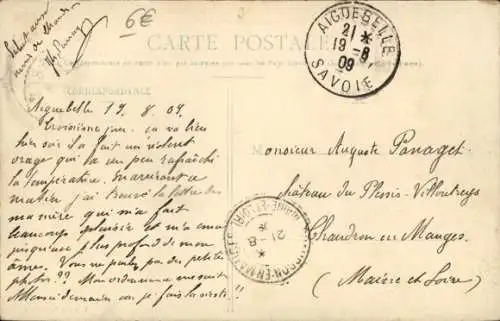 6€
CARTE POSTALE
CORRESPONDANCE
AIGUEBELLE
21 *
19 -8
09
SAVOIE
Aiguebelle 19. 8. 09.
Troisième jour. ça va bien
hier soir il a fait un violent
orage qui a un peu rafraîchi
la température. Maintenant
matin j'ai trouvé la lettre de
ma mère qui m'a fait
beaucoup plaisir et m'a ému
jusqu'au plus profond de mon
âme. Vous ne parlez pas des petites
photos ?? Mon ordonnance me suit
je fais la sieste !!
Monsieur Auguste Panaget
château du Plessis Villoutreys
Chaudron en Mauges
(Maine et Loire)
21 -8